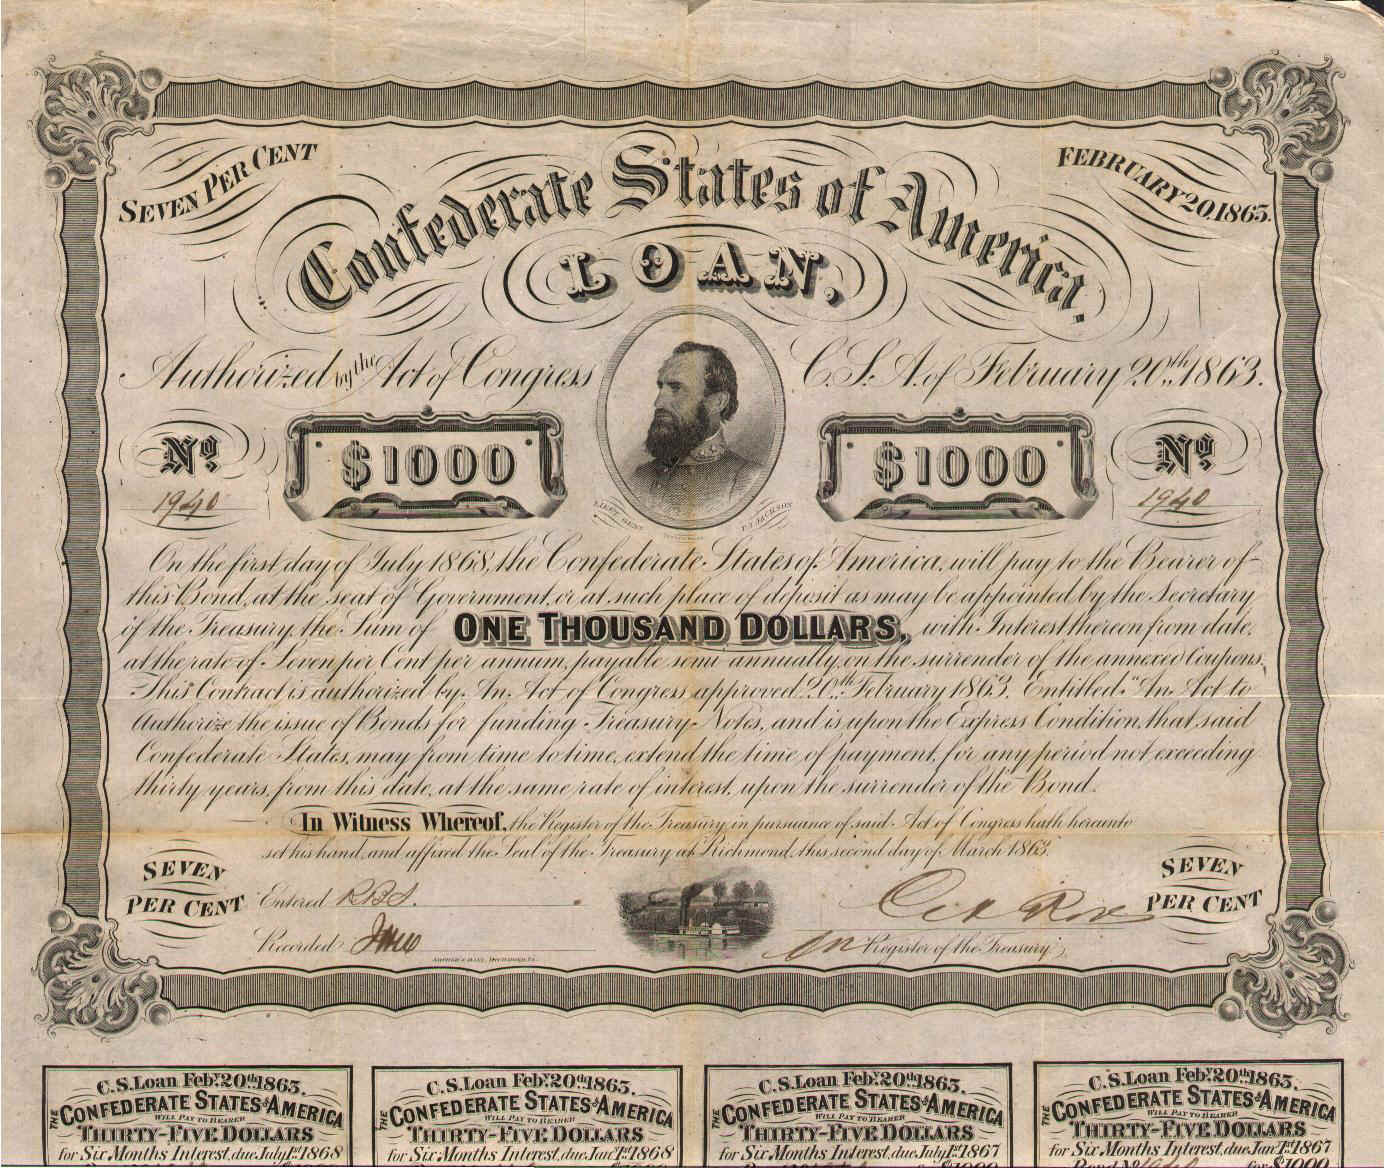 SEVEN PER CENT
FEBRUARY 20, 1863.
Confederate States of America
LOAN,
Authorized by the Act of Congress C.S.A. of February 20th 1863.
No. $1000 $1000 No.
1940 1940
LIEUT. GENL. T.J. JACKSON
On the first day of July 1868, the Confederate States of America, will pay to the Bearer of
this Bond, at the seat of Government, or at such place of deposit as may be appointed by the Secretary
of the Treasury, the Sum of ONE THOUSAND DOLLARS, with Interest thereon from date,
at the rate of Seven per Cent per annum, payable semi annually, on the surrender of the annexed Coupons.
This Contract is authorized by An Act of Congress approved 20th February 1863, Entitled "An Act to
Authorize the issue of Bonds for funding Treasury Notes, and is upon the Express Condition, that said
Confederate States, may from time to time, extend the time of payment, for any period not exceeding
thirty years, from this date, at the same rate of interest, upon the surrender of the Bond.
In Witness Whereof, the Register of the Treasury in pursuance of said Act of Congress hath hereunto
set his hand, and affixed the Seal of the Treasury at Richmond, this second day of March 1863.
SEVEN
PER CENT
Entered
Recorded
Register of the Treasury
SEVEN
PER CENT
C.S. Loan Feby. 20th 1863.
THE CONFEDERATE STATES of AMERICA
WILL PAY TO BEARER
THIRTY-FIVE DOLLARS
for Six Months Interest, due July 1st 1868
C.S. Loan Feby. 20th 1863.
THE CONFEDERATE STATES of AMERICA
WILL PAY TO BEARER
THIRTY-FIVE DOLLARS
for Six Months Interest, due Jany. 1st 1868
C.S. Loan Feby. 20th 1863.
THE CONFEDERATE STATES of AMERICA
WILL PAY TO BEARER
THIRTY-FIVE DOLLARS
for Six Months Interest, due July 1st 1867
C.S. Loan Feby. 20th 1863.
THE CONFEDERATE STATES of AMERICA
WILL PAY TO BEARER
THIRTY-FIVE DOLLARS
for Six Months Interest, due Jany. 1st 1867
Bond No. 1940 for $1000